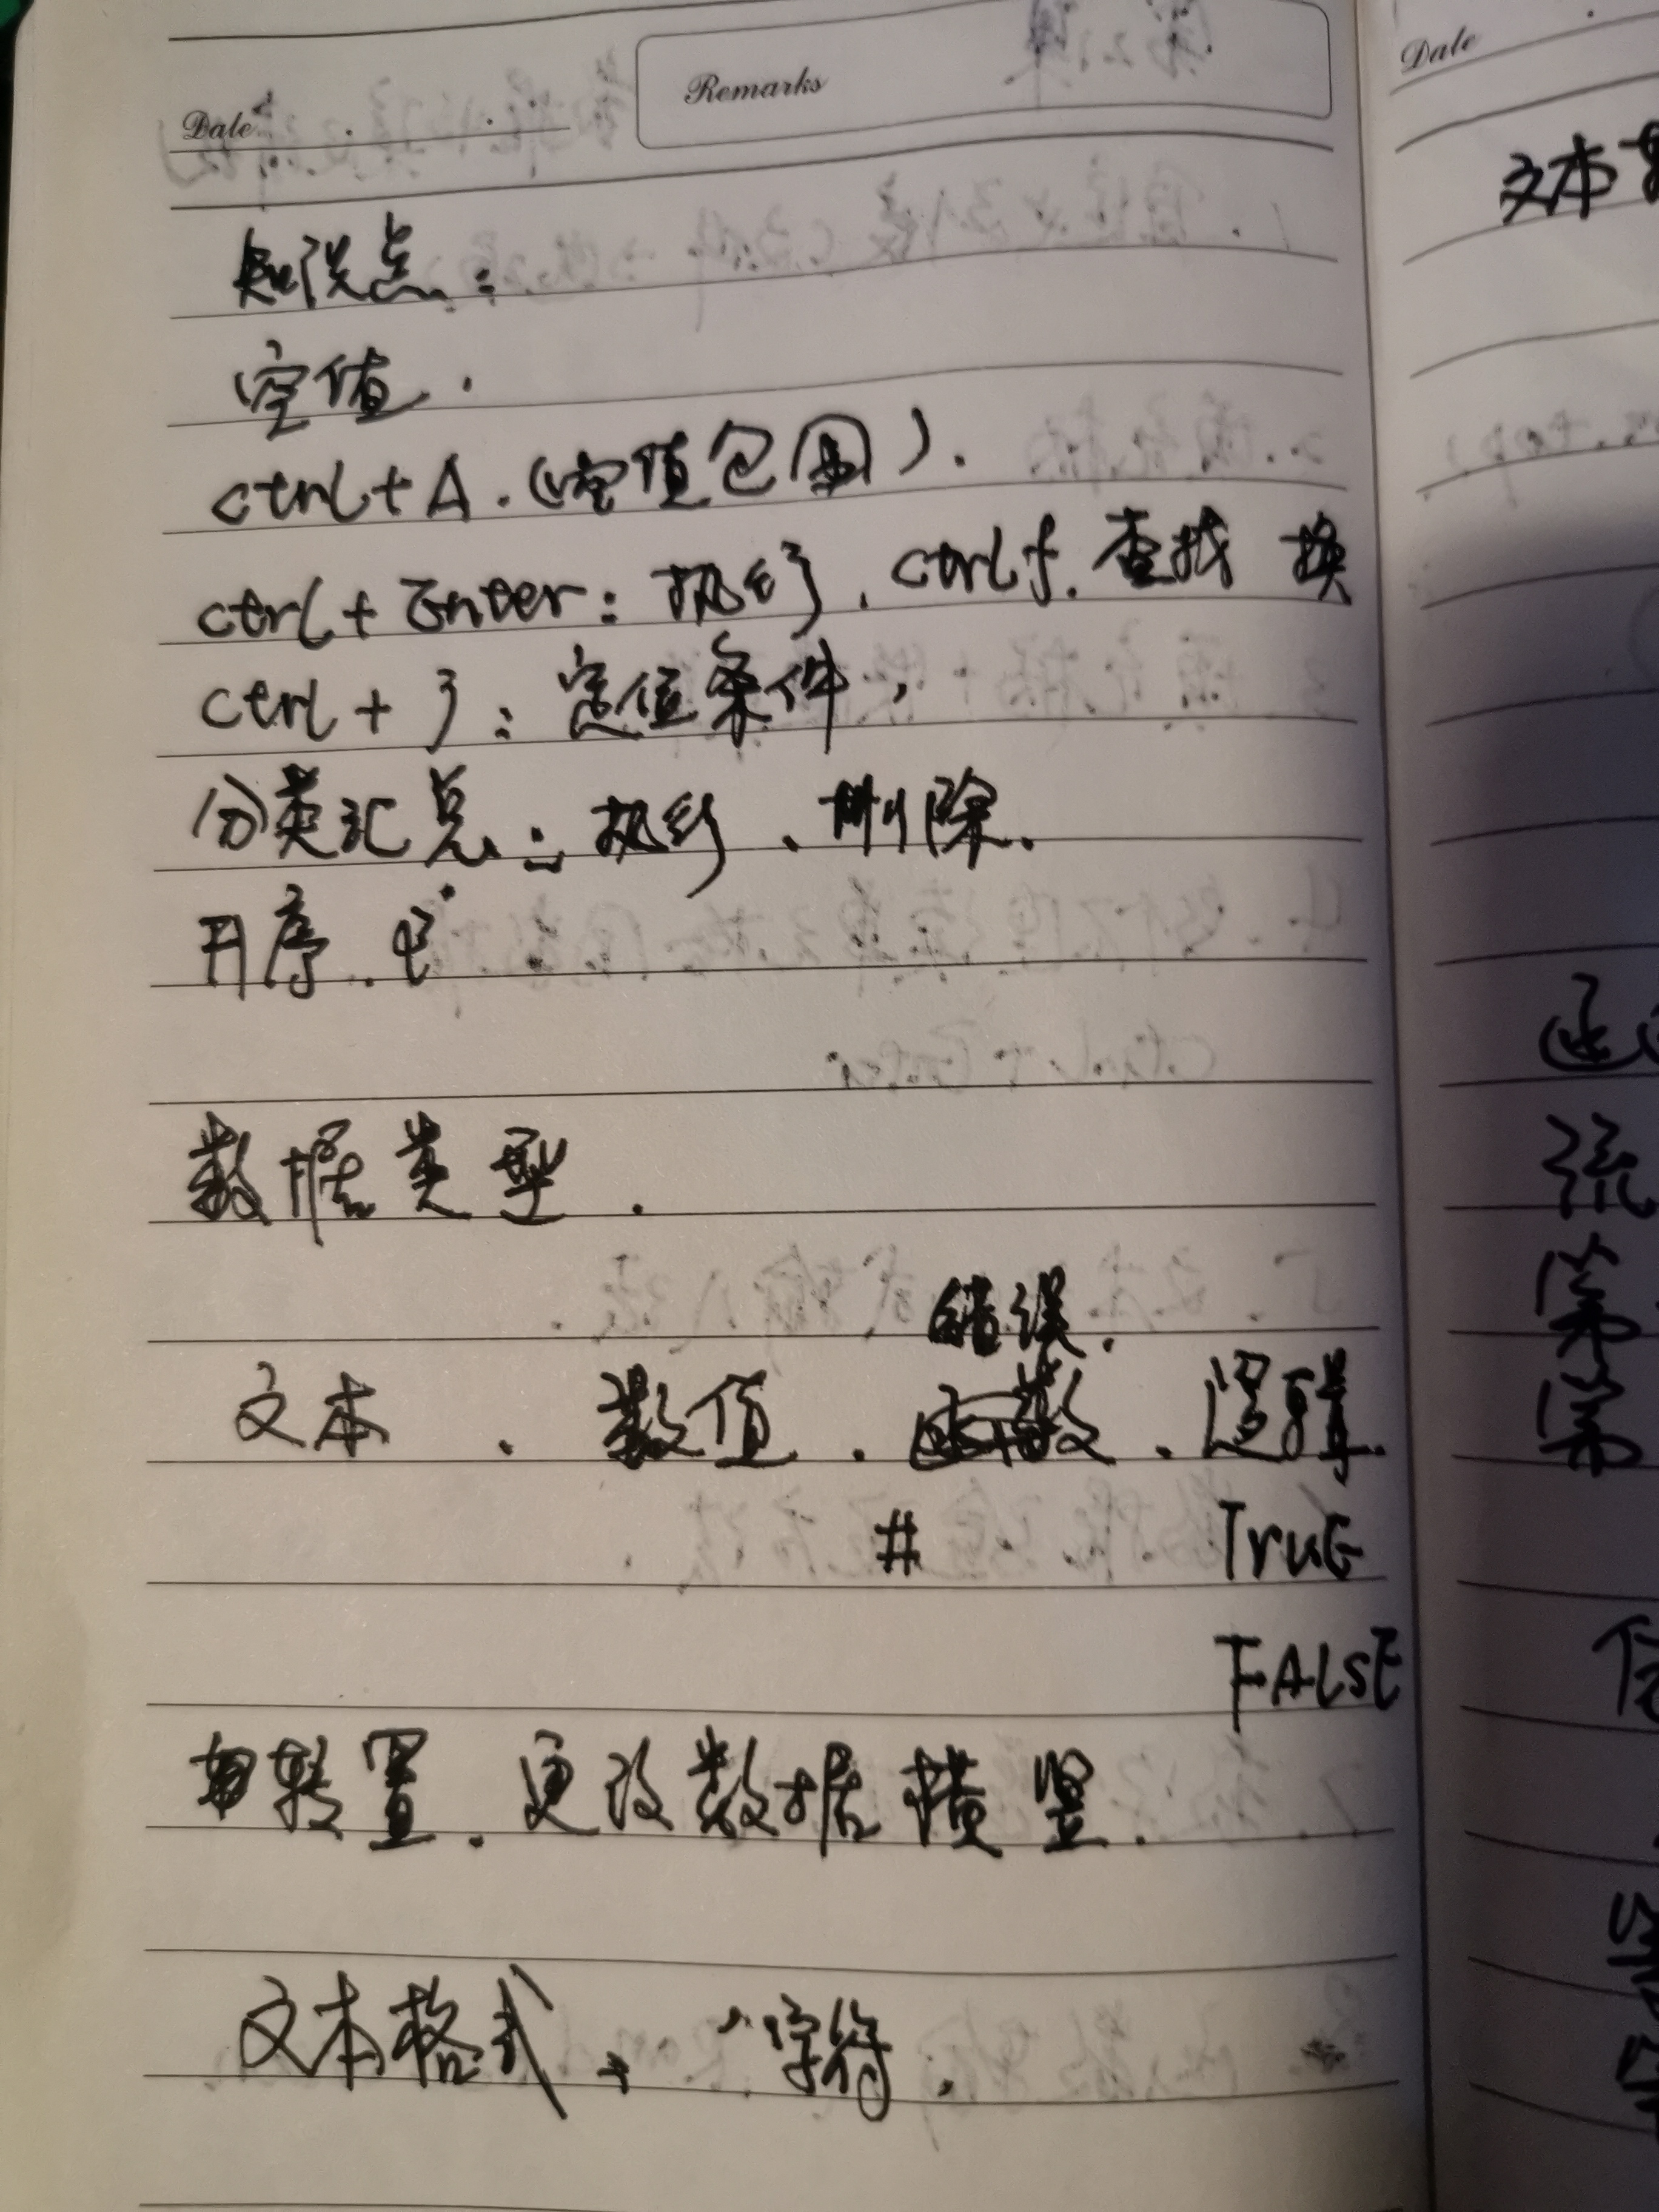 Date
Remarks
知识点：
空值．
ctrl+A．（空值包围）．
ctrl+Enter：执行，ctrl f．查找 换
ctrl+J：定位条件，
分类汇总：执行、删除．
升序．
数据类型．
错误．
文本．数值．函数．逻辑．
# TruE
FALSE
转置．更改数据横竖．
文本格式、字符．
Date
文本
函
流
第
第